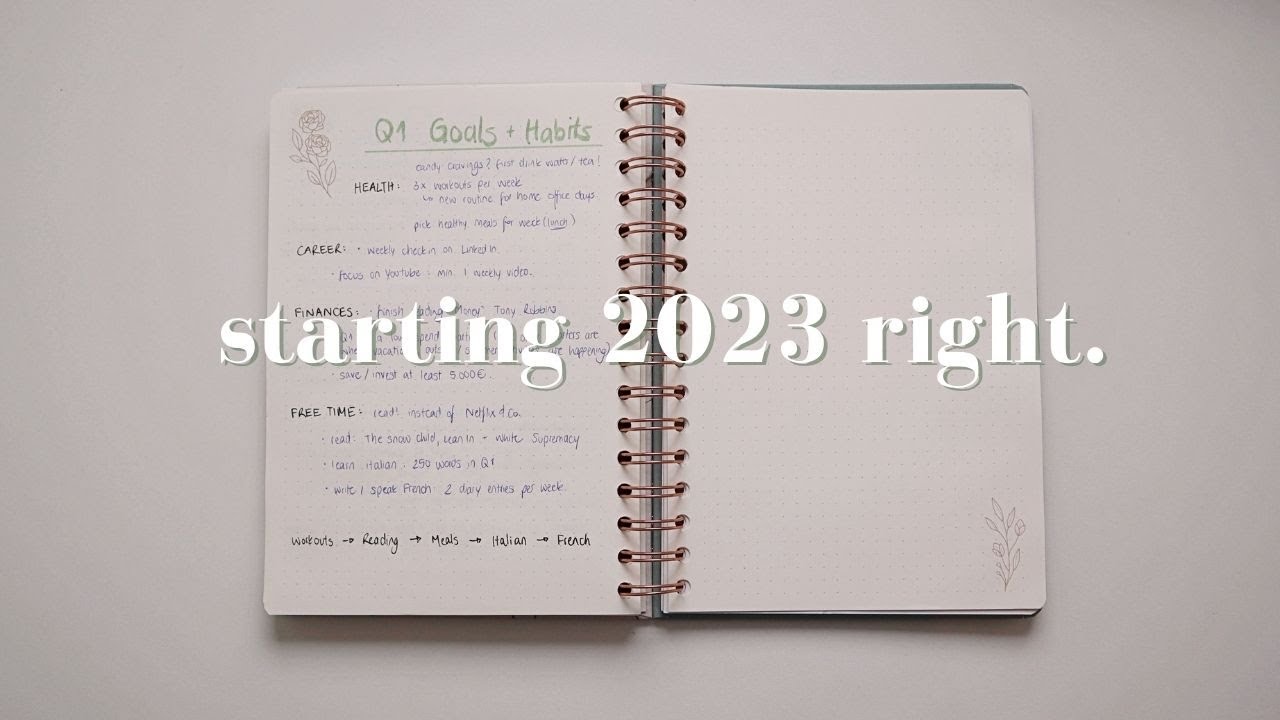 Q1 Goals + Habits
candy cravings? first drink water/tea!
HEALTH: 3x workouts per week
↳ new routine for home office days
pick healthy meals for week (lunch)
CAREER: • weekly check in on LinkedIn.
• focus on YouTube: min. 1 weekly video.
FINANCES: • finish "Money" Tony Robbins
starting 2023 right.
are
are happening)
• save/invest at least 5.000€.
FREE TIME: read! instead of Netflix & Co.
• read: The snow child, Lean In - White Supremacy
• learn Italian: 250 words in Q1
• write / speak French: 2 diary entries per week.
Workouts → Reading → Meals → Italian → French